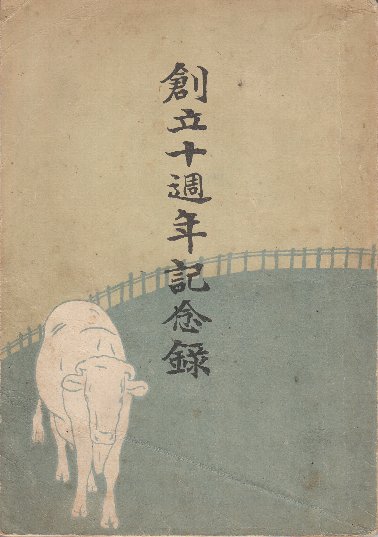 創立十週年記念録